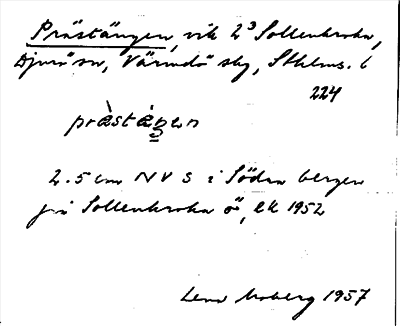 Prästängen, vik 2³ Sollenkroka,
Djurö sn, Värmdö skg, Sthlms. l
224
prästäŋen
2.5 cm NV S i Södra bergen
på Sollenkroka ö, ek 1952
Lena Moberg 1957